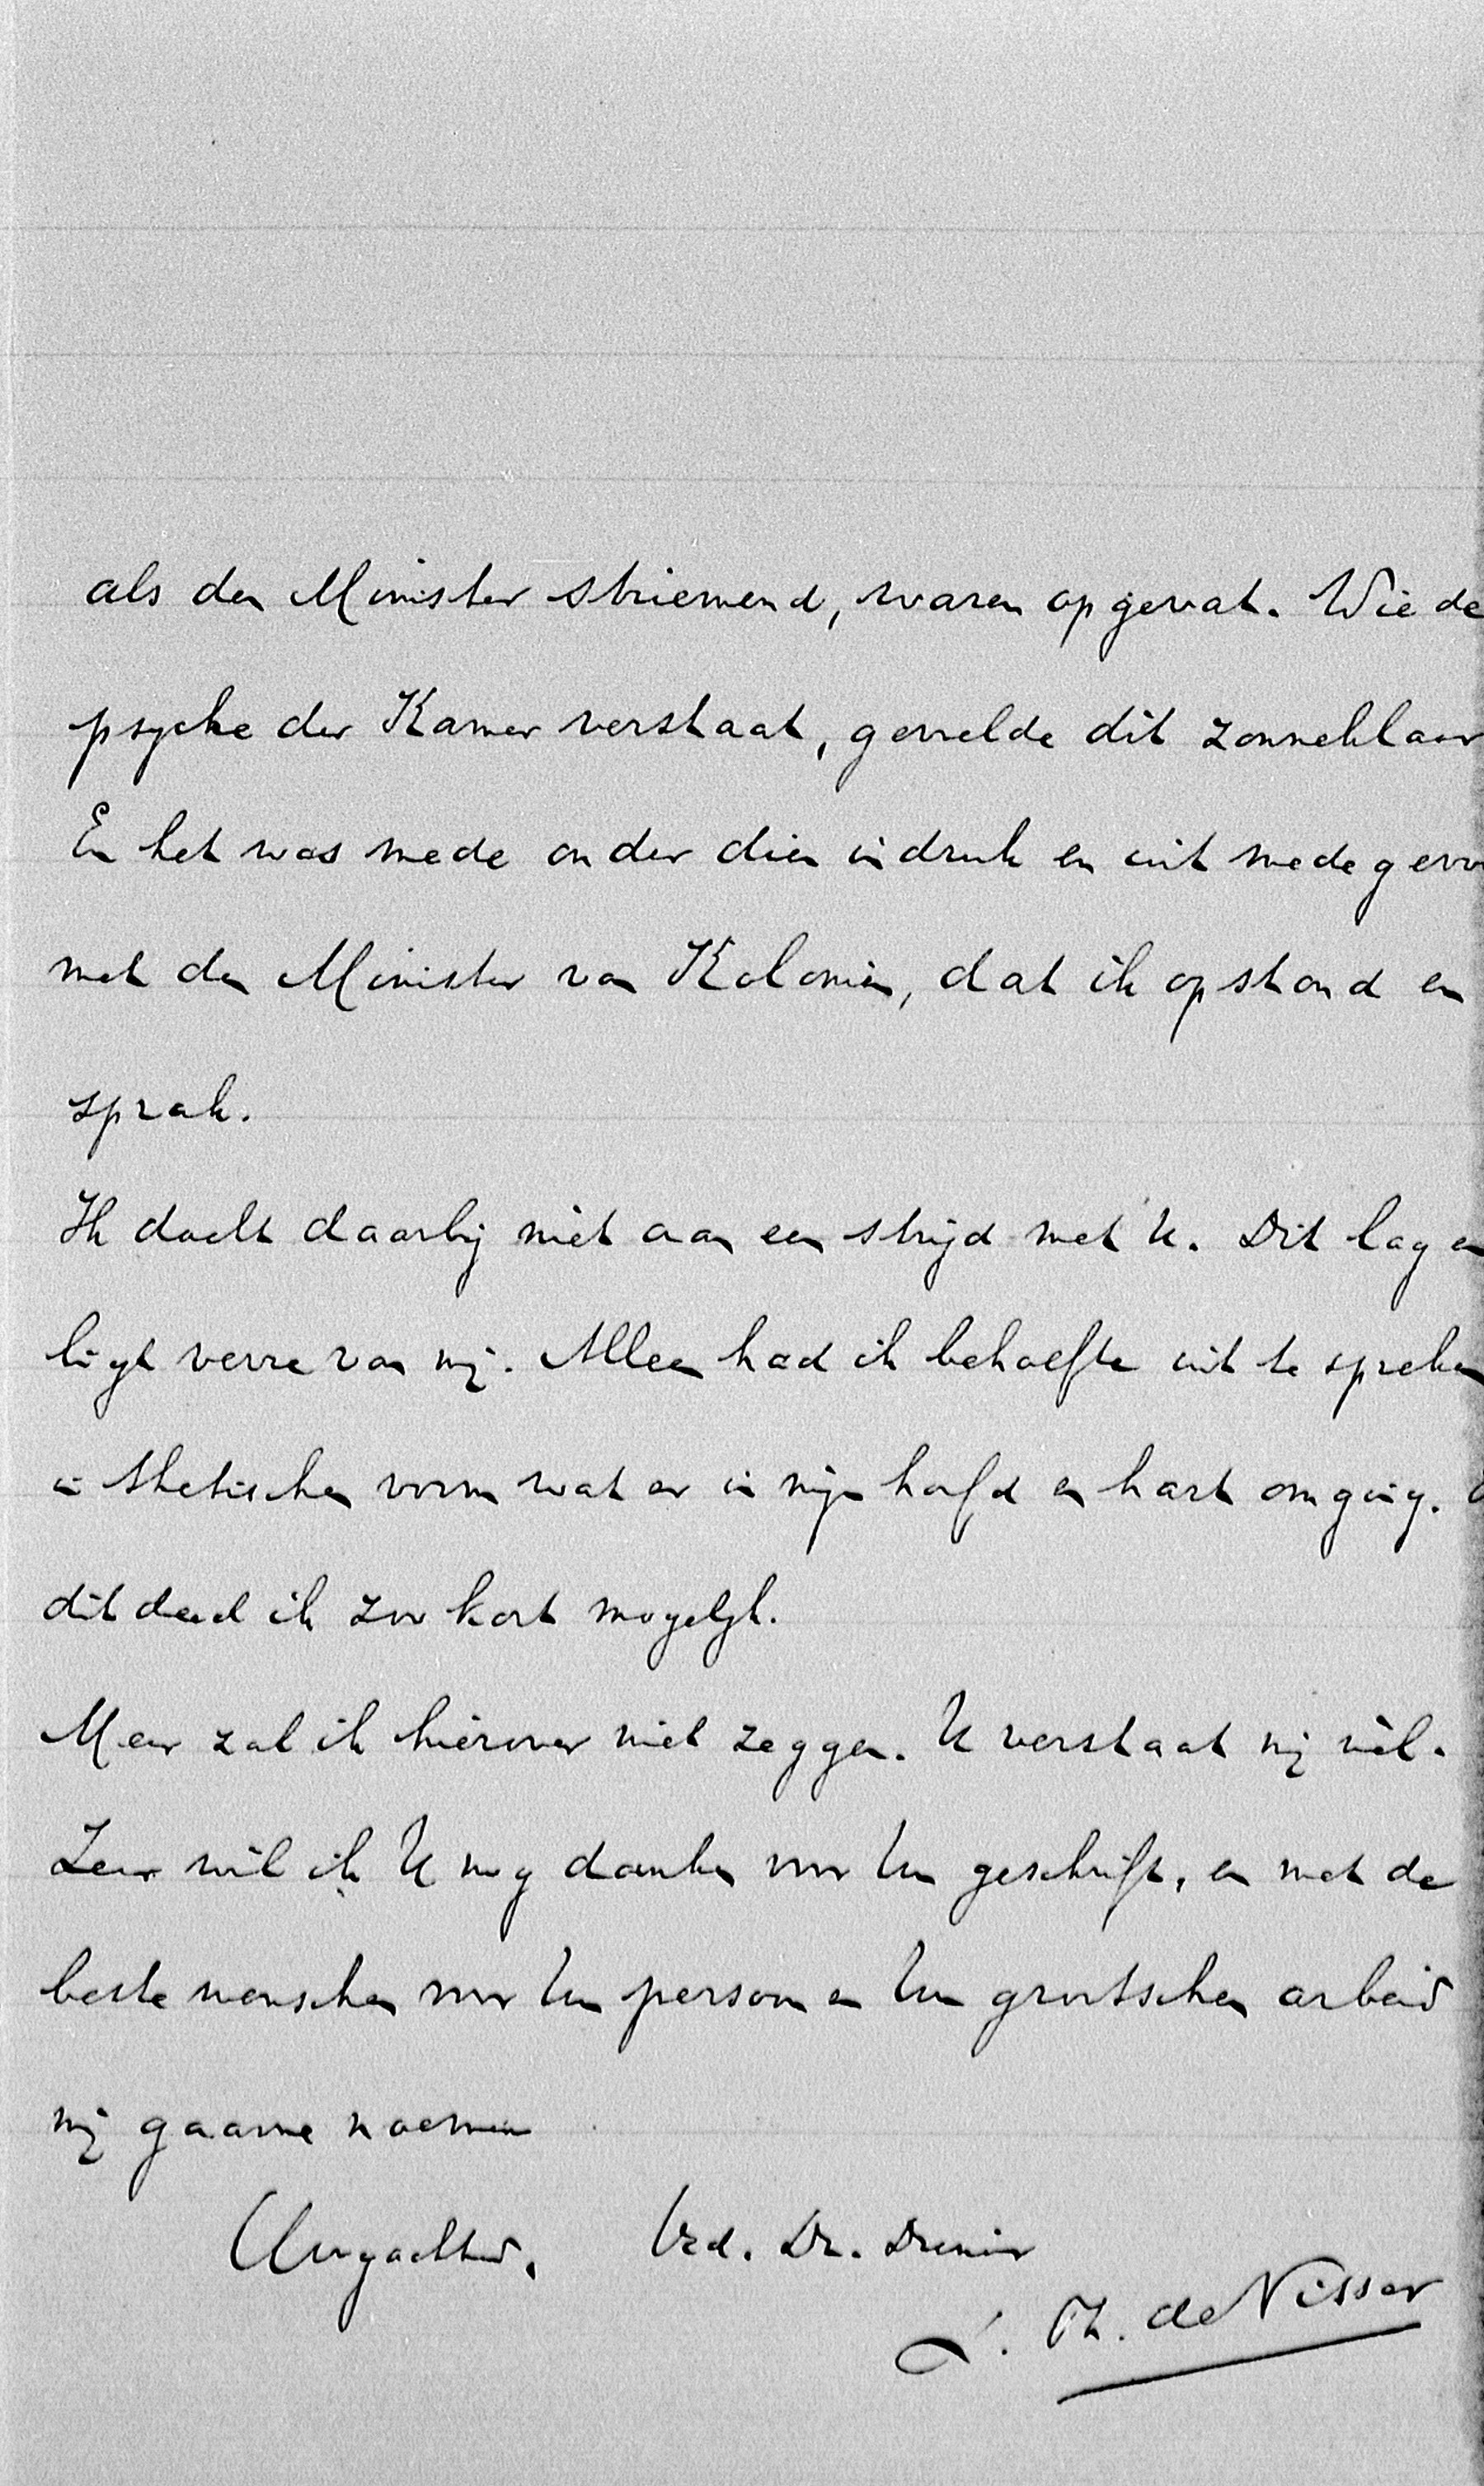 als den Minister striemend, waren opgevat. Wie de
psyche der Kamer verstaat, gevoelde dit zonneklaar
En het was mede onder dien indruk en uit medegevo
met den Minister van Koloniën, dat ik opstond en
sprak.
Ik dacht daarbij niet aan een strijd met U. Dit lag en
ligt verre van mij. Alleen had ik behoefte uit te spreken
in thetischen vorm wat er in mijn hoofd en hart omging.
dit deed ik zoo kort mogelijk.
Meer zal ik hierover niet zeggen. U verstaat mij wèl.
Zeer wil ik U nog danken voor Uw geschrift, en met de
beste wenschen voor Uw persoon en Uw grootschen arbeid
mij gaarne noemen
Hoogachtend, Uw. Dv. Dienaar
J. Th. de Visser